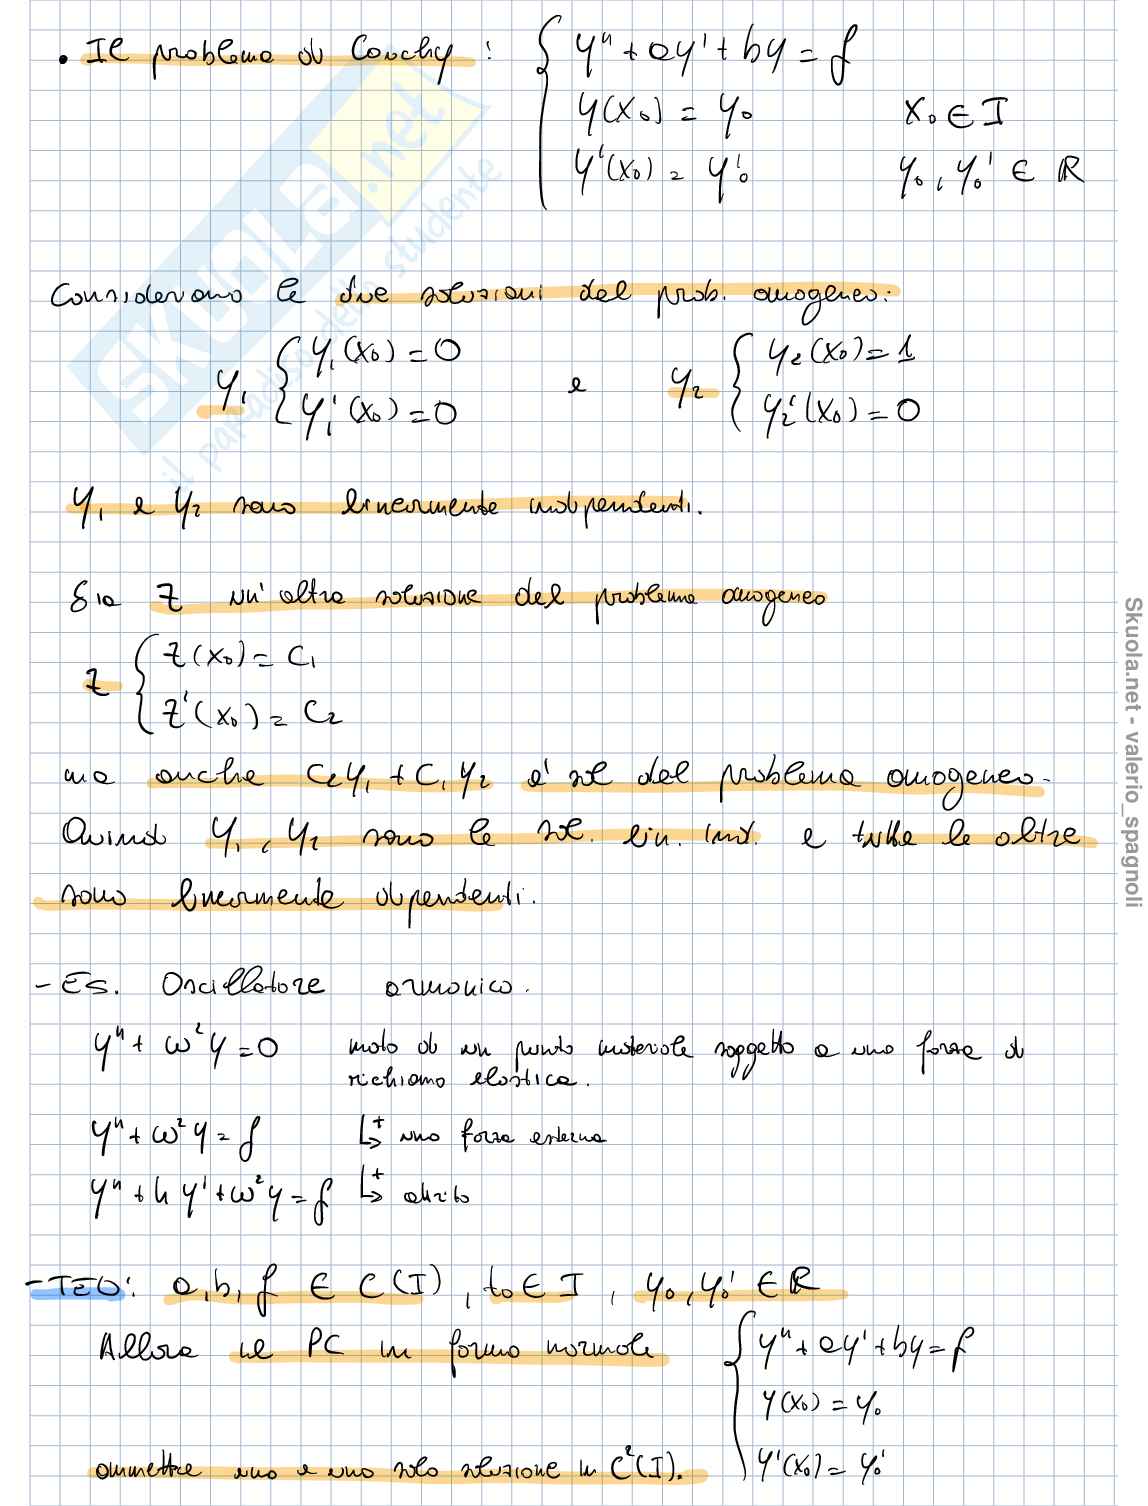 • Il problema di Cauchy : { y'' + ay' + by = f
y(x₀) = y₀ x₀ ∈ I
y'(x₀) = y₀' y₀, y₀' ∈ ℝ
Consideriamo le due soluzioni del prob. omogeneo:
y₁ { y₁(x₀) = 0 e y₂ { y₂(x₀) = 1
y₁'(x₀) = 0 y₂'(x₀) = 0
y₁ e y₂ sono linearmente indipendenti.
Sia z un'altra soluzione del problema omogeneo
z { z(x₀) = c₁
z'(x₀) = c₂
ma anche c₂y₁ + c₁y₂ è sol del problema omogeneo.
Quindi y₁, y₂ sono le sol. lin. ind. e tutte le altre
sono linearmente dipendenti.
- Es. Oscillatore armonico.
y'' + ω²y = 0 moto di un punto materiale soggetto a una forza di
richiamo elastica.
y'' + ω²y = f ↳+ una forza esterna
y'' + hy' + ω²y = f ↳+ attrito
- TEO: a, b, f ∈ C(I), t₀ ∈ I, y₀, y₀' ∈ ℝ
Allora il PC in forma normale { y'' + ay' + by = f
y(x₀) = y₀
ammette una e una sola soluzione in C²(I). y'(x₀) = y₀'
SKUOLA.net
il paradiso dello studente
Skuola.net - valerio_spagnoli